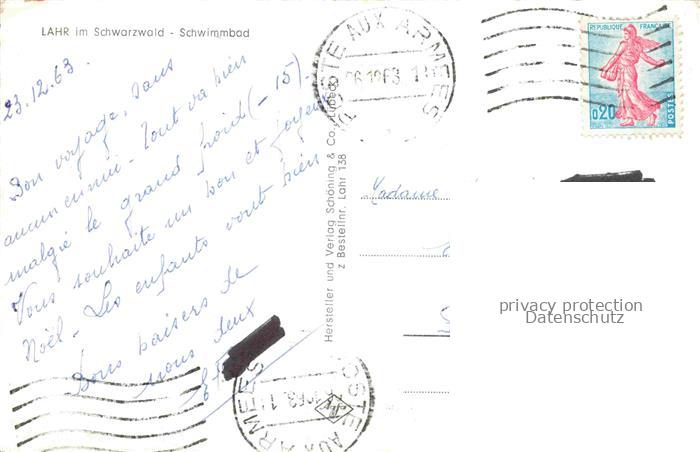 LAHR im Schwarzwald - Schwimmbad
23.12.63.
Bon voyage, sans
aucun ennui. Tout va bien
malgré le grand froid (-15).
Vous souhaite un bon et joyeux
Noël. Les enfants vont bien
Bons baisers de
nous deux
Hersteller und Verlag Schöning & Co., Lübeck
z Bestellnr. Lahr 138
POSTE AUX ARMEES
REPUBLIQUE FRANÇAISE
0,20
POSTES
Madame
privacy protection
Datenschutz
POSTE AUX ARMEES